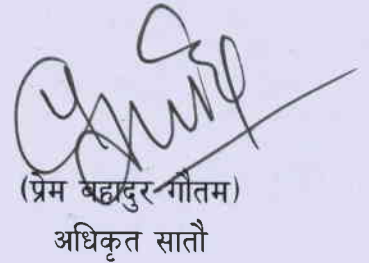 (प्रेम बहादुर गौतम)
अधिकृत सातौ